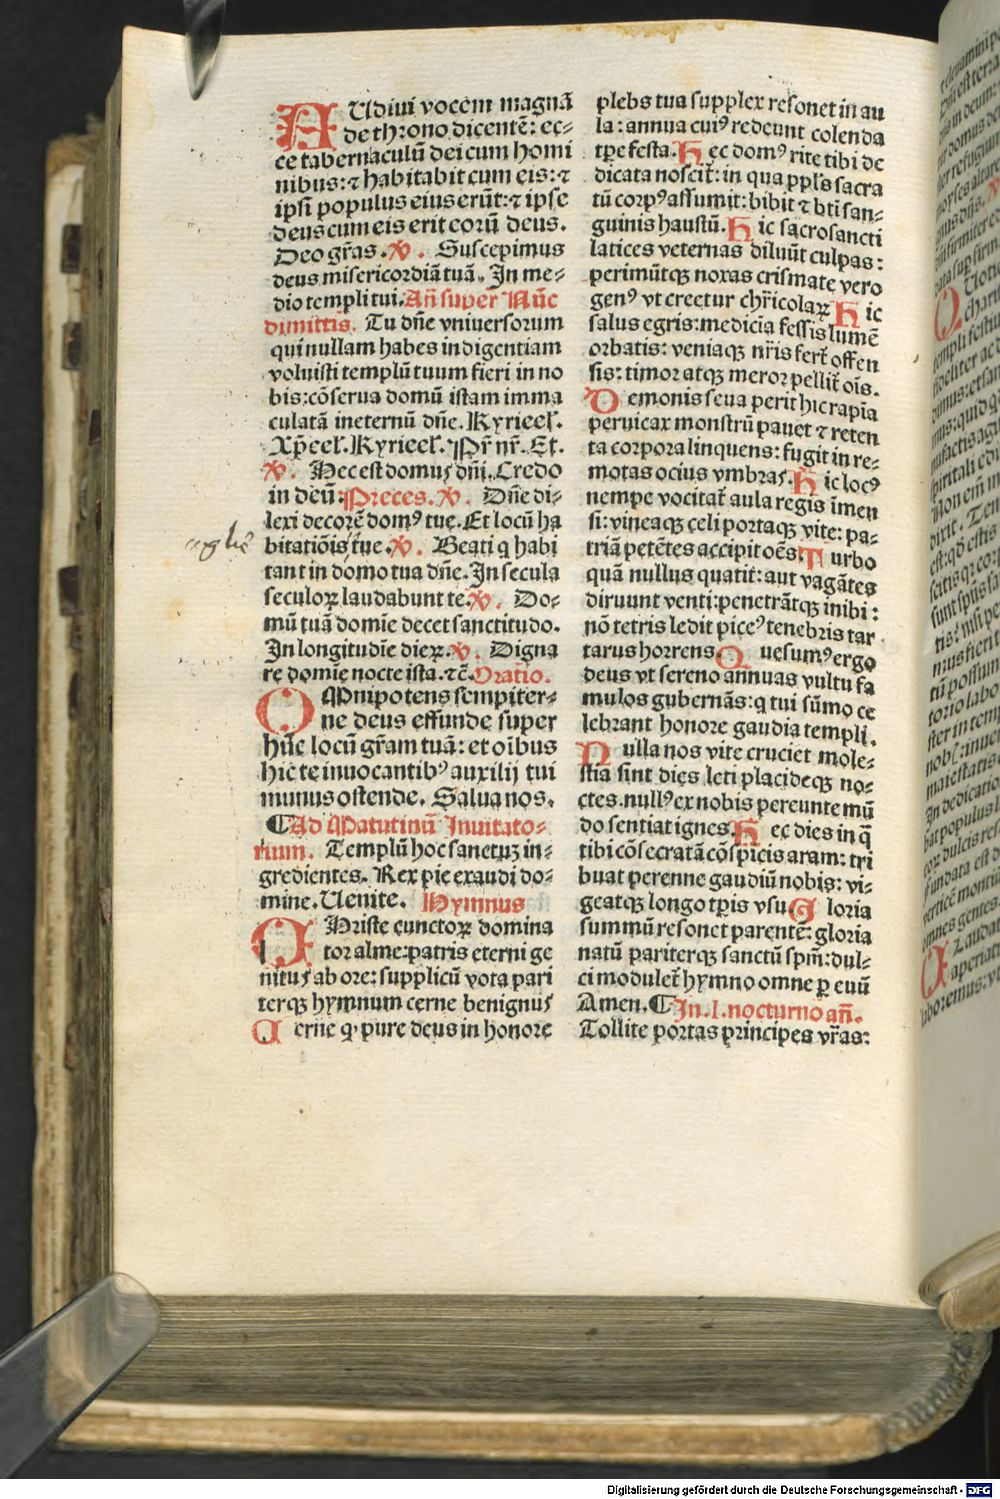 AUdiui vocem magnā
de throno dicentē: ec-
ce tabernaculū dei cum homi
nibus: ⁊ habitabit cum eis: ⁊
ipsi populus eius erūt: ⁊ ipse
deus cum eis erit eorū deus.
Deo gr̄as. ℣. Suscepimus
deus misericordiā tuā. In me-
dio templi tui. Añ super Nūc
dimittis. Tu dn̄e vniuersorum
qui nullam habes indigentiam
voluisti templū tuum fieri in no
bis: cōserua domū istam imma
culatā ineternū dn̄e. Kyrieel'.
Xp̄eel'. Kyrieel'. Pr̄ nr̄. Et.
℣. Hec est domus dn̄i. Credo
in deū: Preces. ℣. Dn̄e di-
lexi decorē domꝰ tue. Et locū ha
bitatiōis tue. ℣. Beati q habi
tant in domo tua dn̄e. In secula
seculoꝝ laudabunt te. ℣. Do-
mū tuā domīe decet sanctitudo.
In longitudīe dieꝝ. ℣. Digna
re domīe nocte ista. ⁊c̄. Oratio.
OMnipotens sempiter-
ne deus effunde super
hūc locū gr̄am tuā: et oībus
hic te inuocantibꝰ auxilij tui
munus ostende. Salua nos.
¶Ad Matutinū Inuitato-
rium. Templū hoc sanctuꝫ in-
gredientes. Rex pie exaudi do-
mine. Uenite. Hymnus
CHriste cunctoꝝ domina
tor alme: patris eterni ge
nitus ab ore: supplicū vota pari
terqꝫ hymnum cerne benignus
Cerne q' pure deus in honore
plebs tua supplex resonet in au
la: annua cuiꝰ redeunt colenda
tp̄e festa. Hec domꝰ rite tibi de
dicata noscit̄: in qua pp̄ls sacra
tū corpꝰ assumit: bibit ⁊ bt̄i san-
guinis haustū. Hic sacrosancti
latices veternas diluūt culpas:
perimūtqꝫ noxas crismate vero
genꝰ vt creetur chr̄icolaꝝ Hic
salus egris: medicīa fessis lumē
orbatis: veniaqꝫ nr̄is fert̄ offen
sis: timor atqꝫ meror pellit̄ oīs.
Demonis seua perit hic rapia
peruicax monstrū pauet ⁊ reten
ta corpora linquens: fugit in re-
motas ocius vmbras. Hic locꝰ
nempe vocitat̄ aula regis īmen
si: vineaqꝫ celi portaqꝫ vite: pa-
triā petētes accipit oēs. Turbo
quā nullus quatit: aut vagātes
diruunt venti: penetrātqꝫ inibi:
nō tetris ledit piceꝰ tenebris tar
tarus horrens. Quesumꝰ ergo
deus vt sereno annuas vultu fa
mulos gubernās: q tui sūmo ce
lebrant honore gaudia templi.
Nulla nos vite cruciet mole-
stia sint dies leti placideqꝫ no-
ctes. nullꝰ ex nobis pereunte mū
do sentiat ignes. Hec dies in q̄
tibi cōsecratā cōspicis aram: tri
buat perenne gaudiū nobis: vi-
geatqꝫ longo tp̄is vsu. Gloria
summū resonet parentē: gloria
natū pariterqꝫ sanctū sp̄m: dul-
ci modulet̄ hymno omne ꝑ euū
Amen. ¶In .I. nocturno añ.
Tollite portas principes vr̄as:
Digitalisierung gefördert durch die Deutsche Forschungsgemeinschaft - DFG